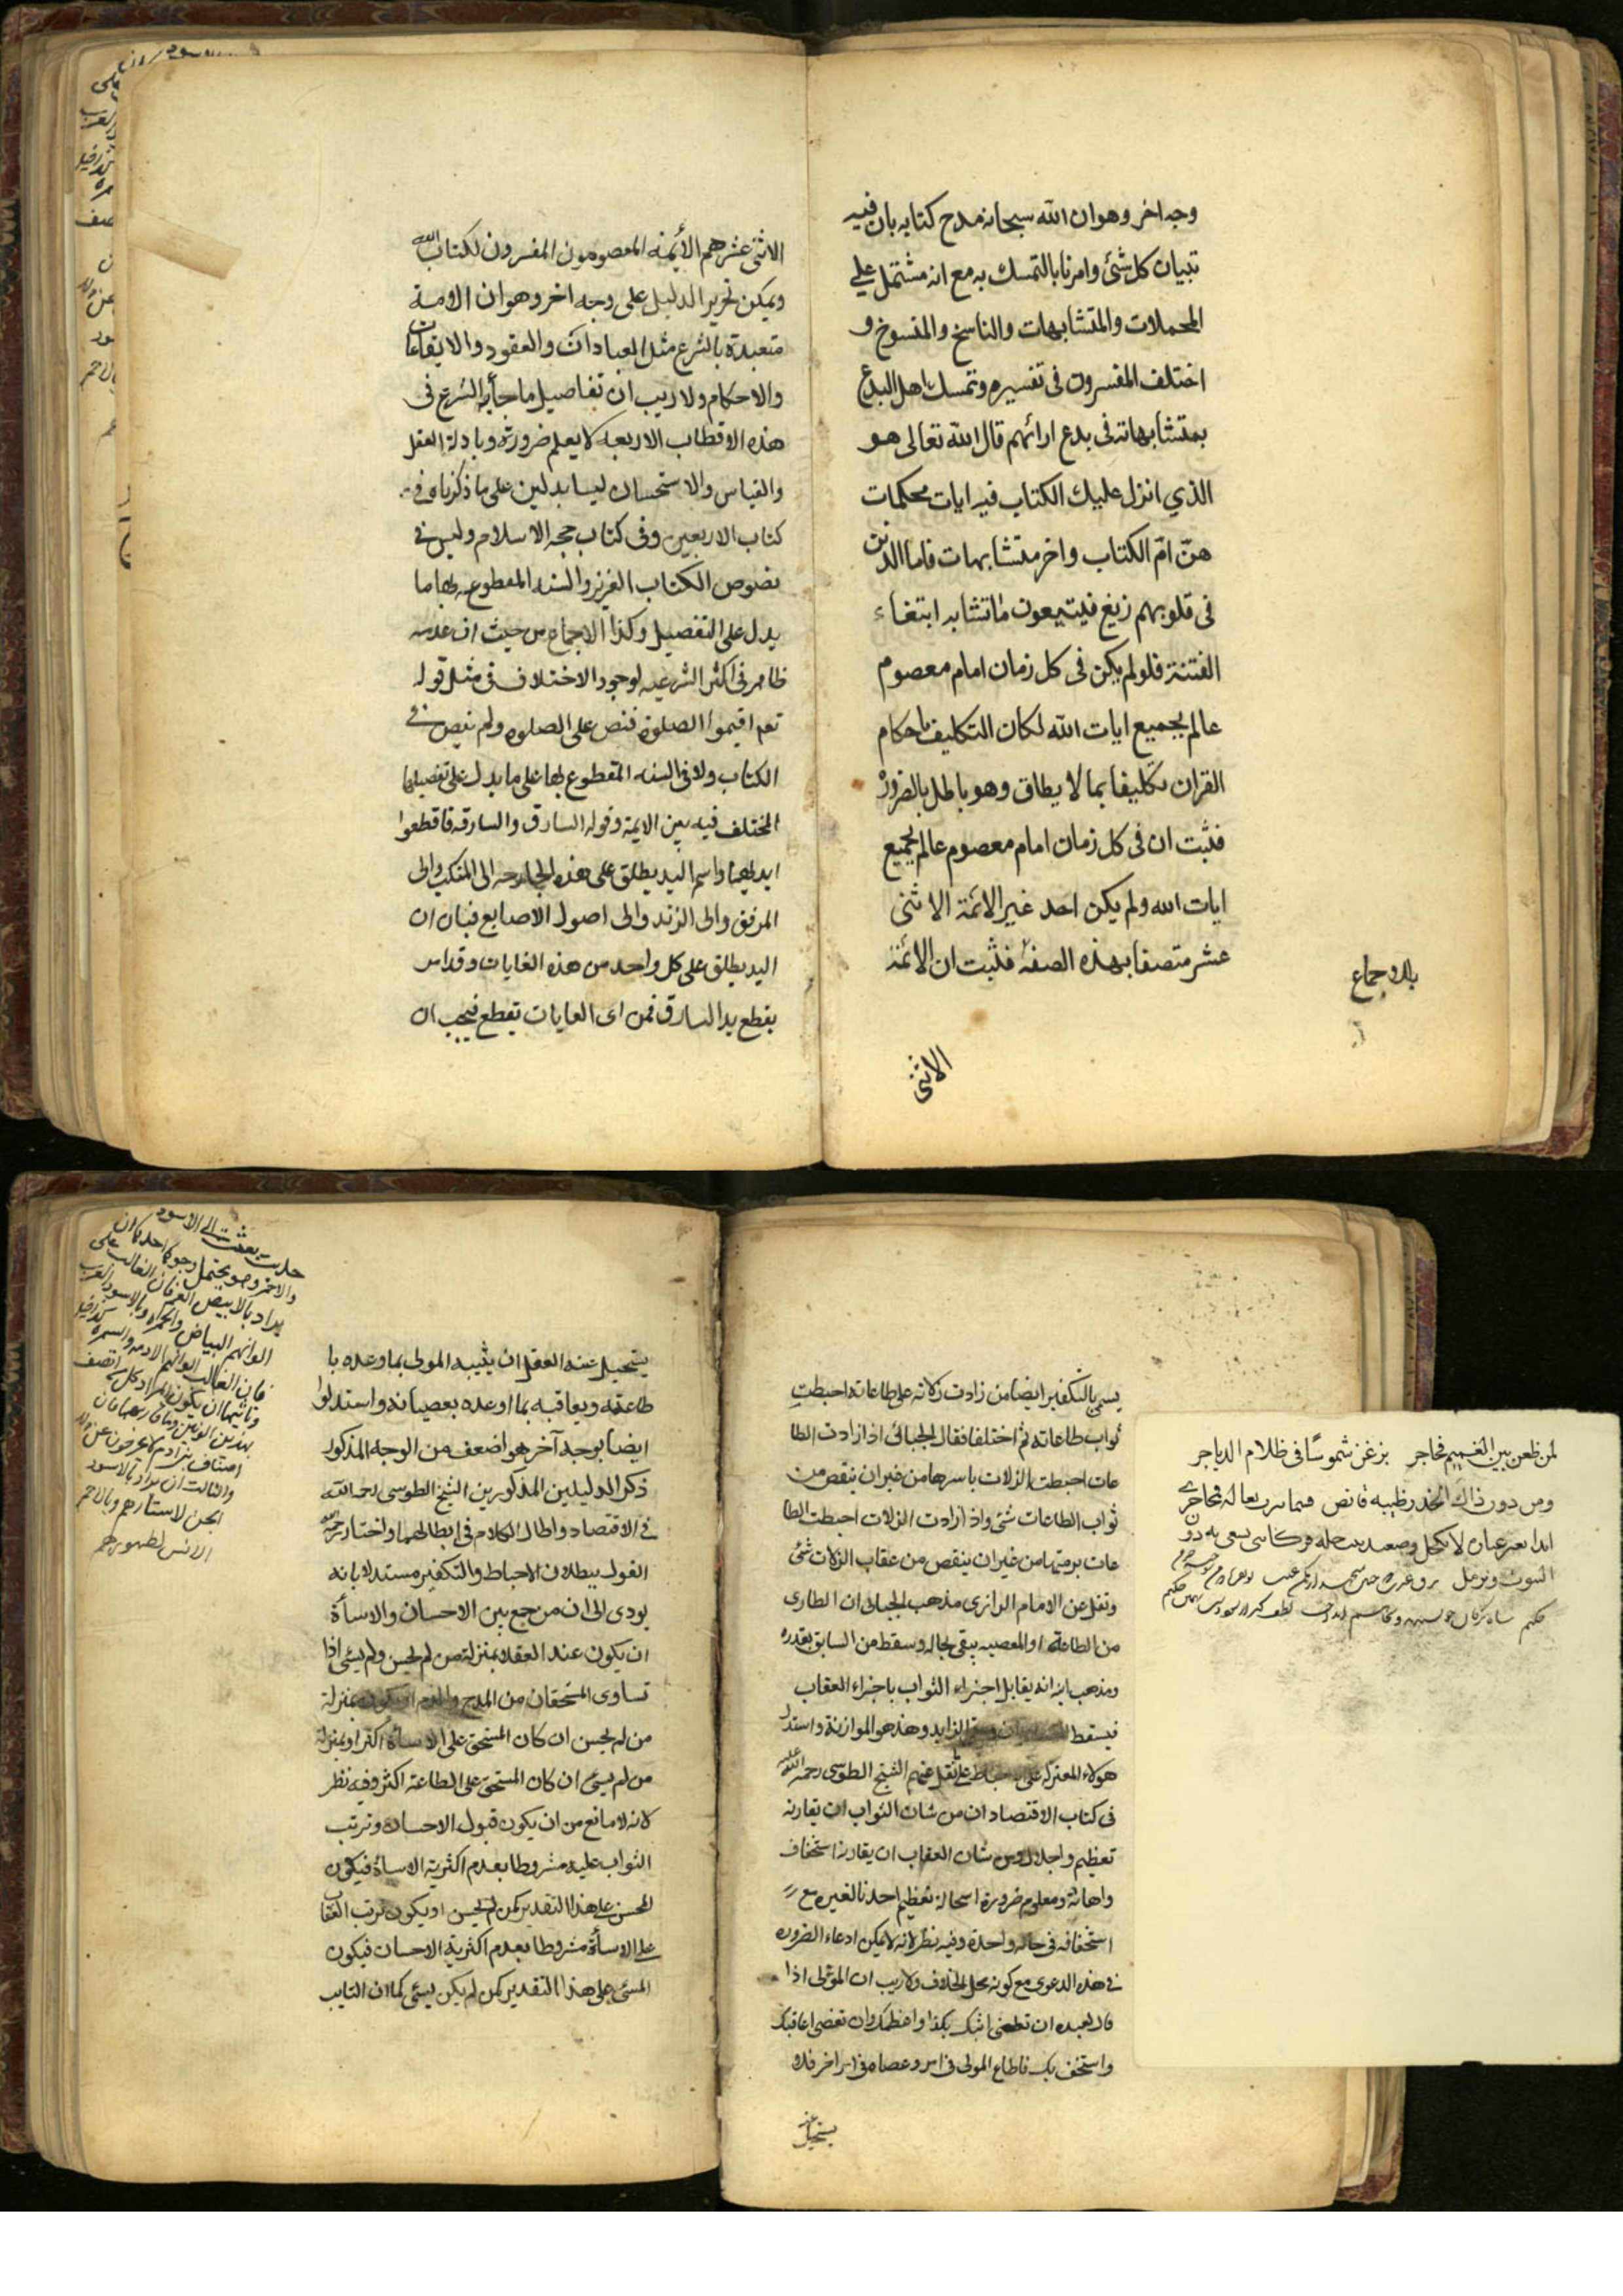 وجه اخر وهو ان الله سبحانه مدح كتابه بان فيه
تبيان كل شئ وامرنا بالتمسك به مع انه مشتمل علي
المجملات والمتشابهات والناسخ والمنسوخ و
اختلف المفسرون فى تفسيره وتمسك اهل البدع
بمتشابهاته فى بدع ارائهم قال الله تعالى هو
الذي انزل عليك الكتاب فيه ايات محكمات
هنّ امّ الكتاب واخر متشابهات فاما الذين
فى قلوبهم زيغ فيتبعون ما تشابه ابتغاء
الفتنة فلو لم يكن فى كل زمان امام معصوم
عالم بجميع ايات الله لكان التكليف باحكام
القران تكليفا بما لا يطاق وهو باطل بالضرورة
فثبت ان فى كل زمان امام معصوم عالم بجميع
ايات الله ولم يكن احد غير الائمة الاثنى
عشر متصفا بهذه الصفة فثبت ان الائمة
بالاجماع
الاثنى
الاثنى عشر هم الأئمه المعصومون المفسرون لكتاب الله
ويمكن تحرير الدليل على وجه اخر وهو ان الامة
متعبدة بالشرع مثل العبادات والعقود والايقاعات
والاحكام ولا ريب ان تفاصيل ما جاء به الشرع فى
هذه الاقطاب الاربعه لا يعلم ضرورة وبادلة العقل
والقياس والاستحسان ليسا بدلين على ما ذكرناه فى
كتاب الاربعين وفى كتاب حجه الاسلام وليس فى
نصوص الكتاب العزيز والسنه المقطوعه بها ما
يدل على التفصيل وكذا الاجماع من حيث ان عدمه
ظاهر فى اكثر الشرعيه لوجود الاختلاف فى مثل قوله
تعم اقيموا الصلوة فنص على الصلوة ولم ينص فى
الكتاب ولا فى السنه المقطوع بها على ما يدل على تفصيلها
المختلف فيه بين الايمة وقوله السارق والسارقه فاقطعوا
ايديهما واسم اليد يطلق على هذه الجارحه الى المنكب والى
المرفق والى الزند والى اصول الاصابع فبان ان
اليد يطلق على كل واحد من هذه الغايات وقد امر
بقطع يد السارق فمن اى الغايات تقطع فيجب ان
يسمى بالتكفير ايضا من زادت زلاته على طاعاته احبطت
ثواب طاعاته ثم اختلفا فقال الجبائى اذا زادت الطا
عات احبطت الزلات باسرها من غير ان ينقص من
ثواب الطاعات شئ واذا زادت الزلات احبطت الطا
عات برمتها من غير ان ينقص من عقاب الزلات شئ
ونقل عن الامام الرازى مذهب الجبائى ان الطارى
من الطاعة او المعصيه يبقى بحاله وسقط من السابق بقدره
ومذهب ابنه انه يقابل اجزاء الثواب باجزاء العقاب
فيسقط الزايد وهذه هو الموازنة واستدل
هولاء المعتزله على نقل عنهم الشيخ الطوسى رحمة الله عليه
فى كتاب الاقتصاد ان من شان الثواب ان يقارنه
تعظيم واجلال ومن شان العقاب ان يقارنه استخفاف
واهانة ومعلوم ضرورة استحالة تعظيم احدنا لغيره مع
استخفافه فى حاله واحدة وفيه نظر لانه لا يمكن ادعاء الضروره
فى هذه الدعوى مع كونه محل الخلاف ولا ريب ان المولى اذا
قال لعبده ان تطعنى اثبتك بكذا واعظمك وان تعصى اعاقبك
واستخف بك فاطاع المولى فى امر وعصاه فى امر اخر فلا
يستحيل عنه
لمن ظعن بين الغميم فحاجر بزغن شموسًا فى ظلام الدياجر
ومن دون ذاك الخدر ظبيه قانص
يستحيل عند العقل ان يثيبه المولى بما وعده با
طاعته ويعاقبه بما اوعده بعصيانه واستدلوا
ايضا بوجه آخر هو اضعف من الوجه المذكور
ذكر الدليلين المذكورين الشيخ الطوسى رحمه الله
فى الاقتصاد واطال الكلام فى ابطالهما واختار رحمه الله
القول ببطلان الاحباط والتكفير مستدلا بانه
يودى الى ان من جمع بين الاحسان والاسأة
ان يكون عند العقلا بمنزلة من لم يحسن ولم يسئ اذا
تساوى المستحقان من المدح والذم او يكون بمنزلة
من لم يحسن ان كان المستحق على الاسأة اكثر او بمنزلة
من لم يسئ ان كان المستحق على الطاعة اكثر وفيه نظر
لانه لا مانع من ان يكون قبول الاحسان وترتب
الثواب عليه مشروطا بعدم اكثرية الاساة فيكون
المحسن على هذا التقدير كمن لم يحسن او يكون ترتب العقاب
على الاسأة مشروطا بعدم اكثرية الاحسان فيكون
المسئ على هذا التقدير كمن لم يكن يسئ كما ان التايب
حديث بعثت الى الاسود
والاحمر وهو يحتمل وجوها احدها ان
يراد بالابيض العجم فان الغالب على
الوانهم البياض والحمرة وبالاسود العرب
فان الغالب الوانهم الادمه والسمره
وثانيها ان يكون المراد كل من اتصف
بهذين الوصفين
والثالث ان يراد بالاسود
الجن لاستتارهم وبالاحمر
الانس لظهورهم